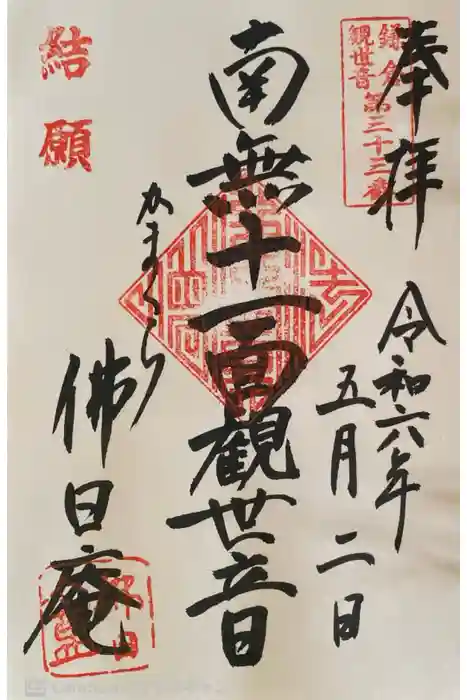 奉拝
鎌倉
観世音第三十三番
令和六年
五月二日
南無十一面觀世音
かまくら
佛日庵
結願